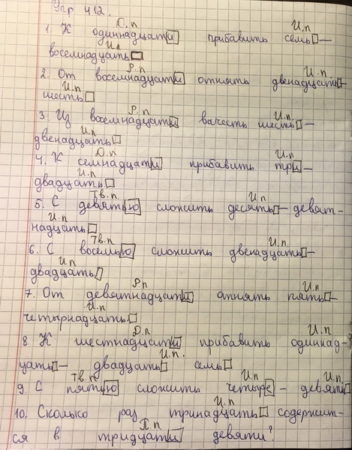 Упр 412.
Д.п И.п
1. К одиннадцати прибавить семь —
И.п
восемнадцать
Р.п И.п
2. От восемнадцати отнять двенадцать —
И.п
шесть
Р.п И.п
3. Из восемнадцати вычесть шесть —
И.п
двенадцать
Д.п И.п
4. К семнадцати прибавить три —
И.п
двадцать
Тв.п И.п
5. С девятью сложить десять — девят-
И.п
надцать
Тв.п И.п
6. С восемью сложить двенадцать —
И.п
двадцать
Р.п И.п
7. От девятнадцати отнять пять —
И.п
четырнадцать
Д.п И.п
8 К шестнадцати прибавить одиннад-
И.п.
цать — двадцать семь
Тв.п И.п И.п
9 С пятью сложить четыре — девять
И.п
10. Сколько раз тринадцать содержит-
П.п
ся в тридцати девяти?